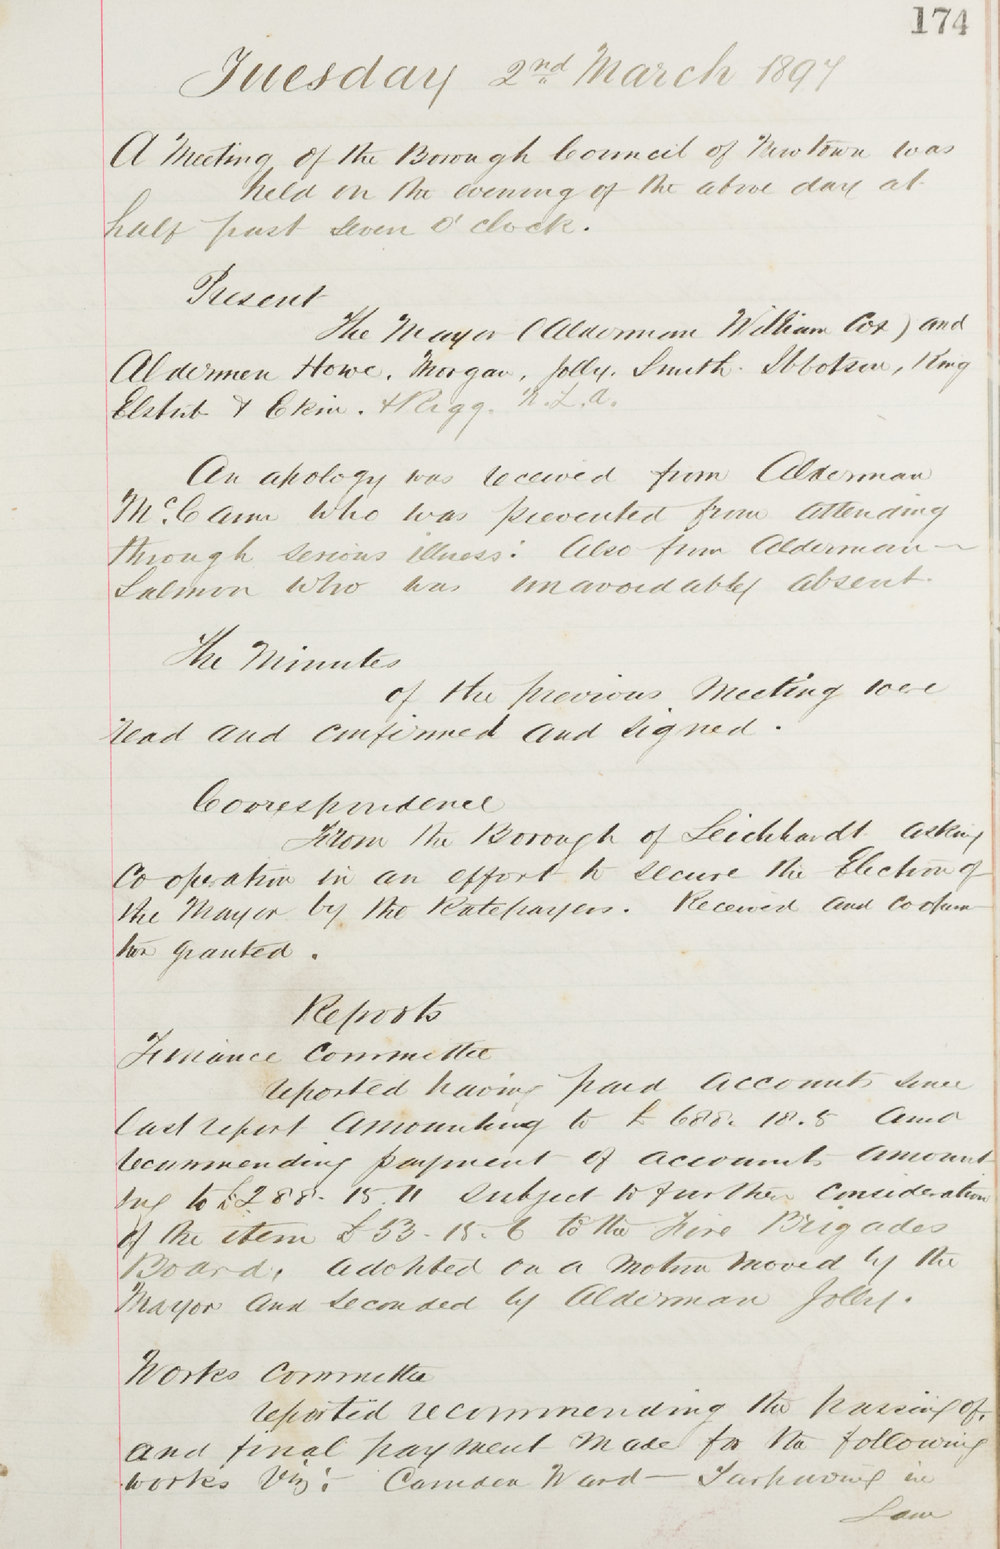 174
Tuesday 2nd March 1897
A Meeting of the Borough Council of Newtown was
held on the evening of the above day at
half past seven o'clock.
Present
The Mayor (Alderman William Cox) and
Aldermen Howe, Morgan, Jolly, Smith, Ibbotson, King
Elstub & Ekin. & Rigg.
An apology was received from Alderman
McCann who was prevented from attending
through serious illness: Also from Alderman
Salmon who was unavoidably absent.
The Minutes
of the previous Meeting were
read and confirmed and signed.
Correspondence
From the Borough of Leichhardt asking
Co operation in an effort to secure the Election of
the Mayor by the Ratepayers. Received and coopera
tion granted.
Reports
Finance Committee
reported having paid accounts since
last report amounting to £688. 18. 5 and
recommending payment of accounts amount
ing to £288. 15. 11 subject to further consideration
of the item £53. 15. 6 to the Fire Brigades
Board, adopted on a motion moved by the
Mayor and seconded by Alderman Jolly.
Works Committee
reported recommending the passing of,
and final payment made for the following
works Viz:- Camden Ward - Tarpaving in
Law